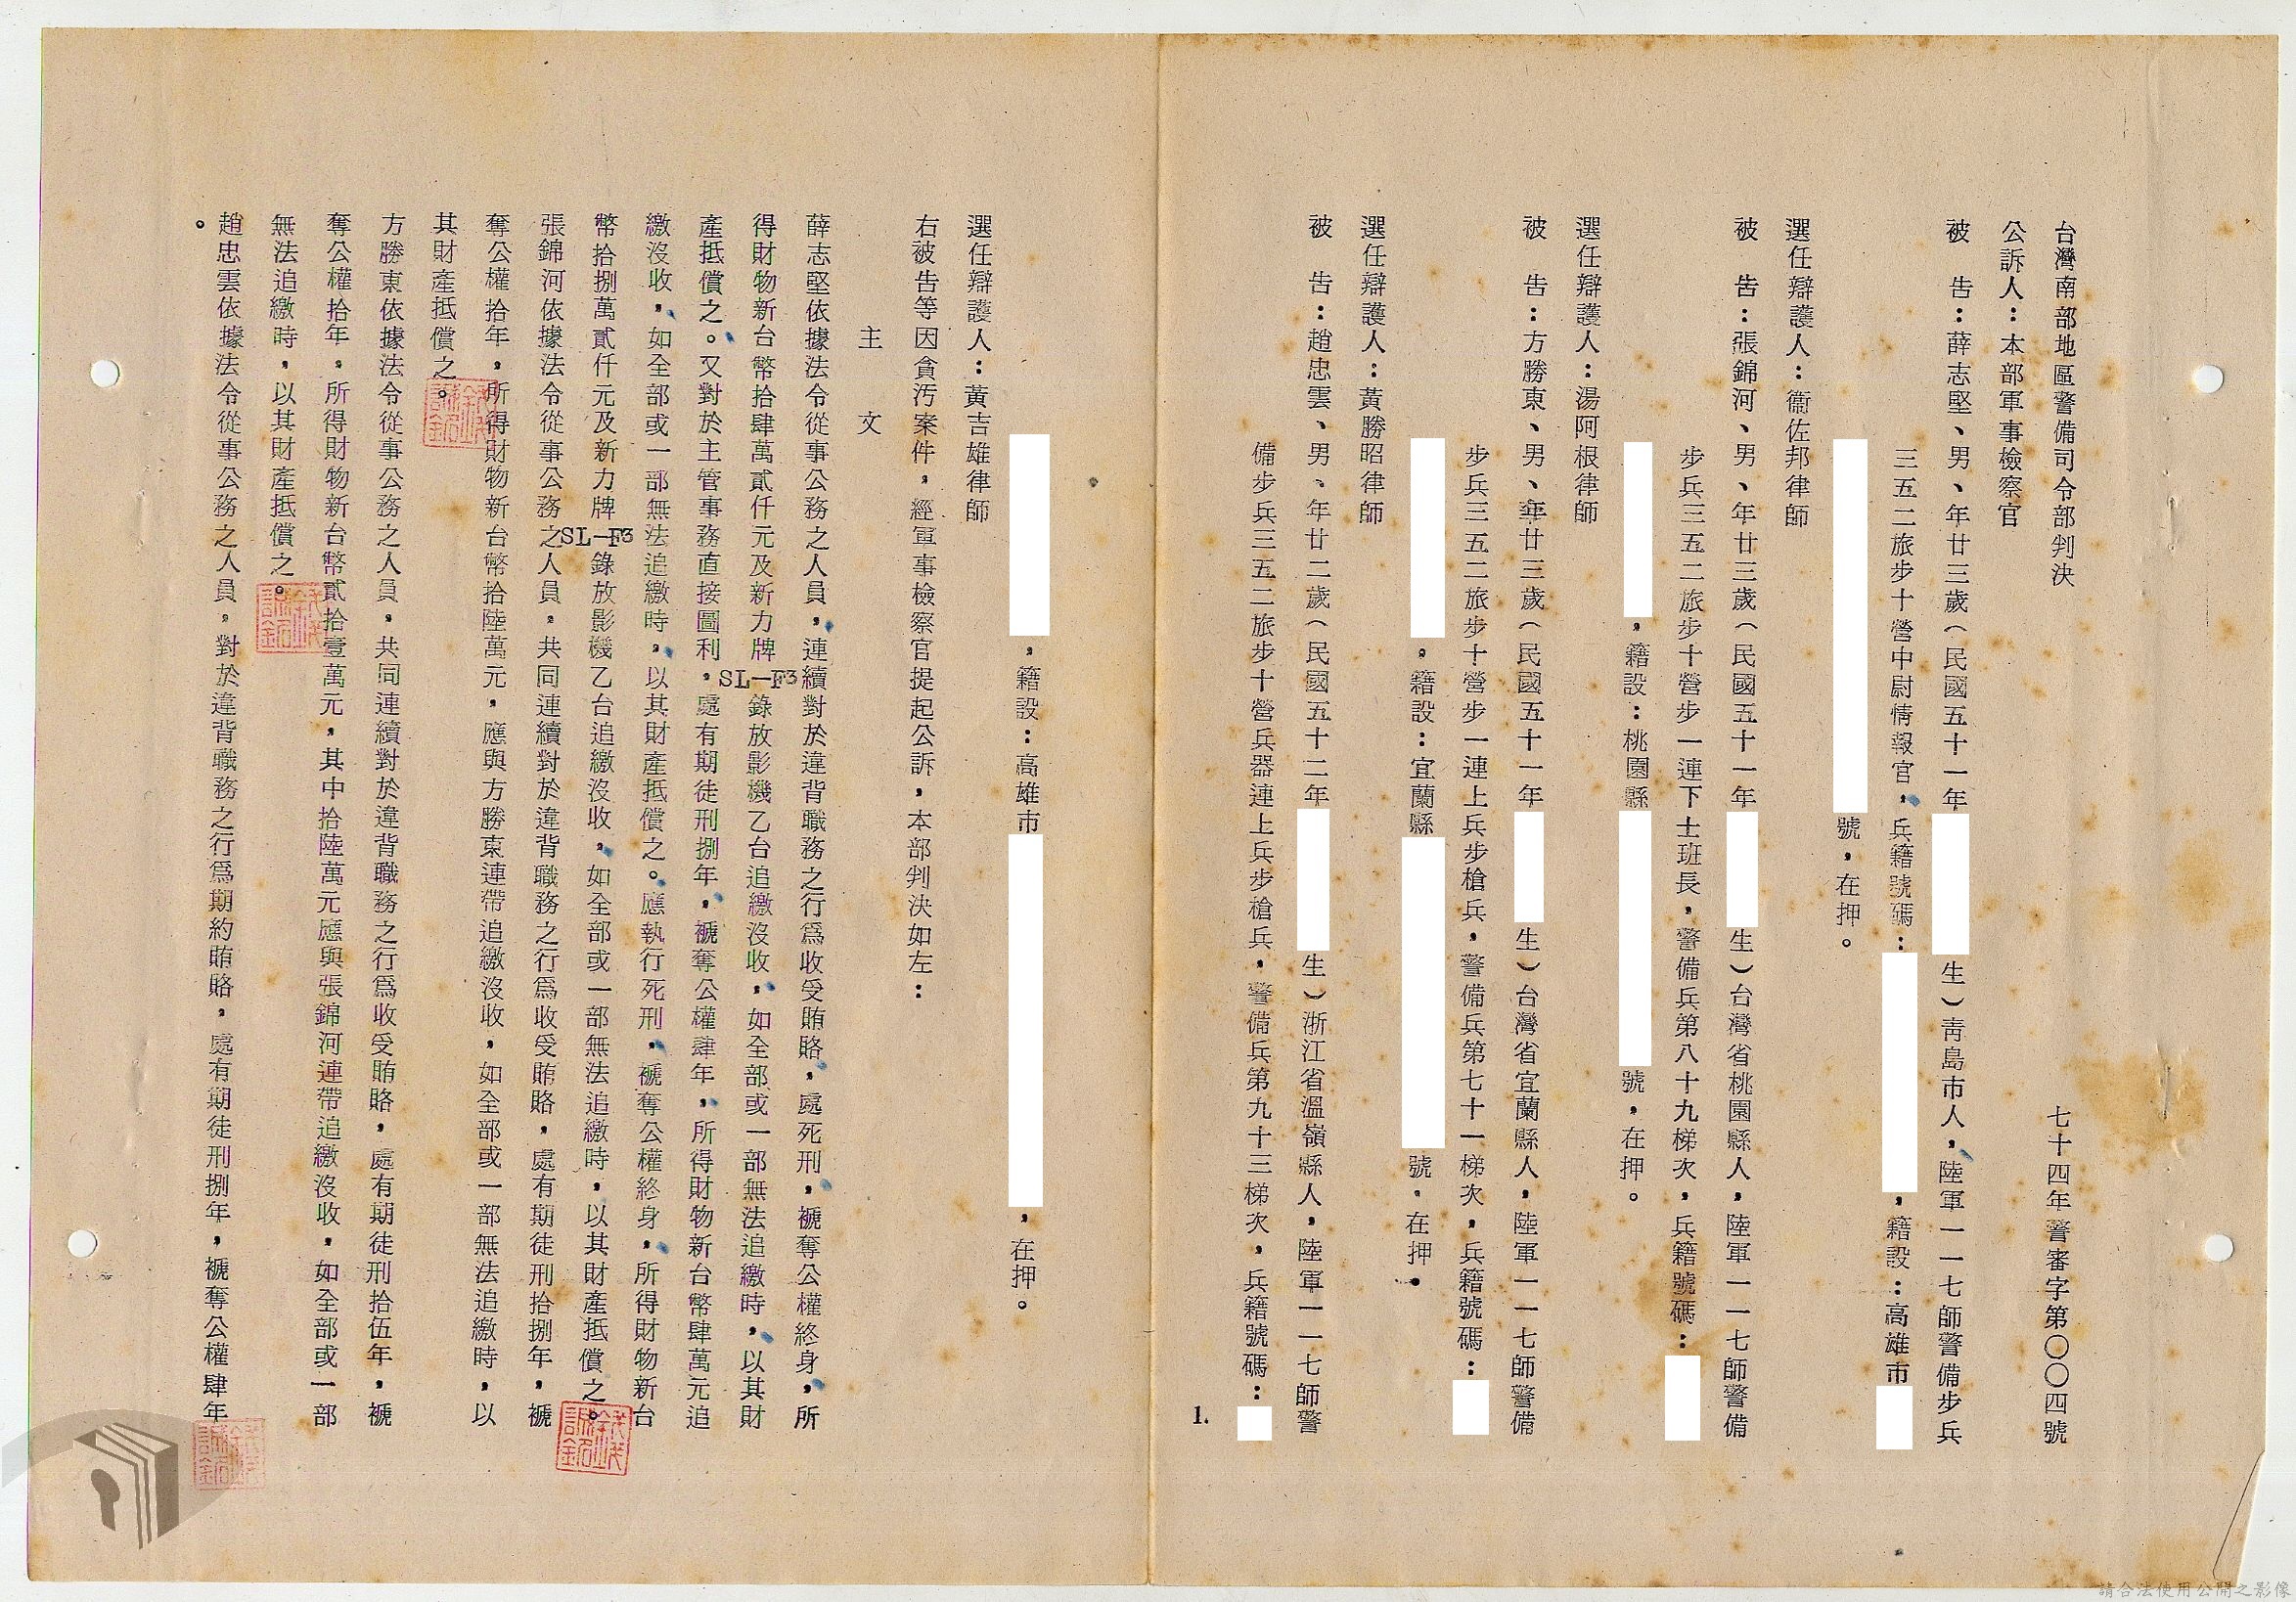 台灣南部地區警備司令部判決 七十四年警審字第〇〇四號
公訴人：本部軍事檢察官
被 告：薛志堅、男、年廿三歲（民國五十一年 生）青島市人，陸軍一一七師警備步兵
三五二旅步十營中尉情報官，兵籍號碼： ，籍設：高雄市
號，在押。
選任辯護人：衞佐邦律師
被 告：張錦河、男、年廿三歲（民國五十一年 生）台灣省桃園縣人，陸軍一一七師警備
步兵三五二旅步十營步一連下士班長，警備兵第八十九梯次，兵籍號碼：
，籍設：桃園縣 號，在押。
選任辯護人：湯阿根律師
被 告：方勝東、男、年廿三歲（民國五十一年 生）台灣省宜蘭縣人，陸軍一一七師警備
步兵三五二旅步十營步一連上兵步槍兵，警備兵第七十一梯次，兵籍號碼：
，籍設：宜蘭縣 號，在押。
選任辯護人：黃勝昭律師
被 告：趙忠雲、男、年廿二歲（民國五十二年 生）浙江省溫嶺縣人，陸軍一一七師警
備步兵三五二旅步十營兵器連上兵步槍兵，警備兵第九十三梯次，兵籍號碼：
1.
，籍設：高雄市 ，在押。
選任辯護人：黃吉雄律師
右被告等因貪污案件，經軍事檢察官提起公訴，本部判決如左：
主 文
薛志堅依據法令從事公務之人員，連續對於違背職務之行爲收受賄賂，處死刑，褫奪公權終身，所
得財物新台幣拾肆萬貳仟元及新力牌SL—F3錄放影機乙台追繳沒收，如全部或一部無法追繳時，以其財
產抵償之。又對於主管事務直接圖利，處有期徒刑捌年，褫奪公權肆年，所得財物新台幣肆萬元追
繳沒收，如全部或一部無法追繳時，以其財產抵償之。應執行死刑，褫奪公權終身，所得財物新台
幣拾捌萬貳仟元及新力牌SL—F3錄放影機乙台追繳沒收，如全部或一部無法追繳時，以其財產抵償之。
張錦河依據法令從事公務之人員，共同連續對於違背職務之行爲收受賄賂，處有期徒刑拾捌年，褫
奪公權拾年，所得財物新台幣拾陸萬元，應與方勝東連帶追繳沒收，如全部或一部無法追繳時，以
其財產抵償之。
方勝東依據法令從事公務之人員，共同連續對於違背職務之行爲收受賄賂，處有期徒刑拾伍年，褫
奪公權拾年，所得財物新台幣貳拾壹萬元，其中拾陸萬元應與張錦河連帶追繳沒收，如全部或一部
無法追繳時，以其財產抵償之。
趙忠雲依據法令從事公務之人員，對於違背職務之行爲期約賄賂，處有期徒刑捌年，褫奪公權肆年
。
請合法使用公開之影像